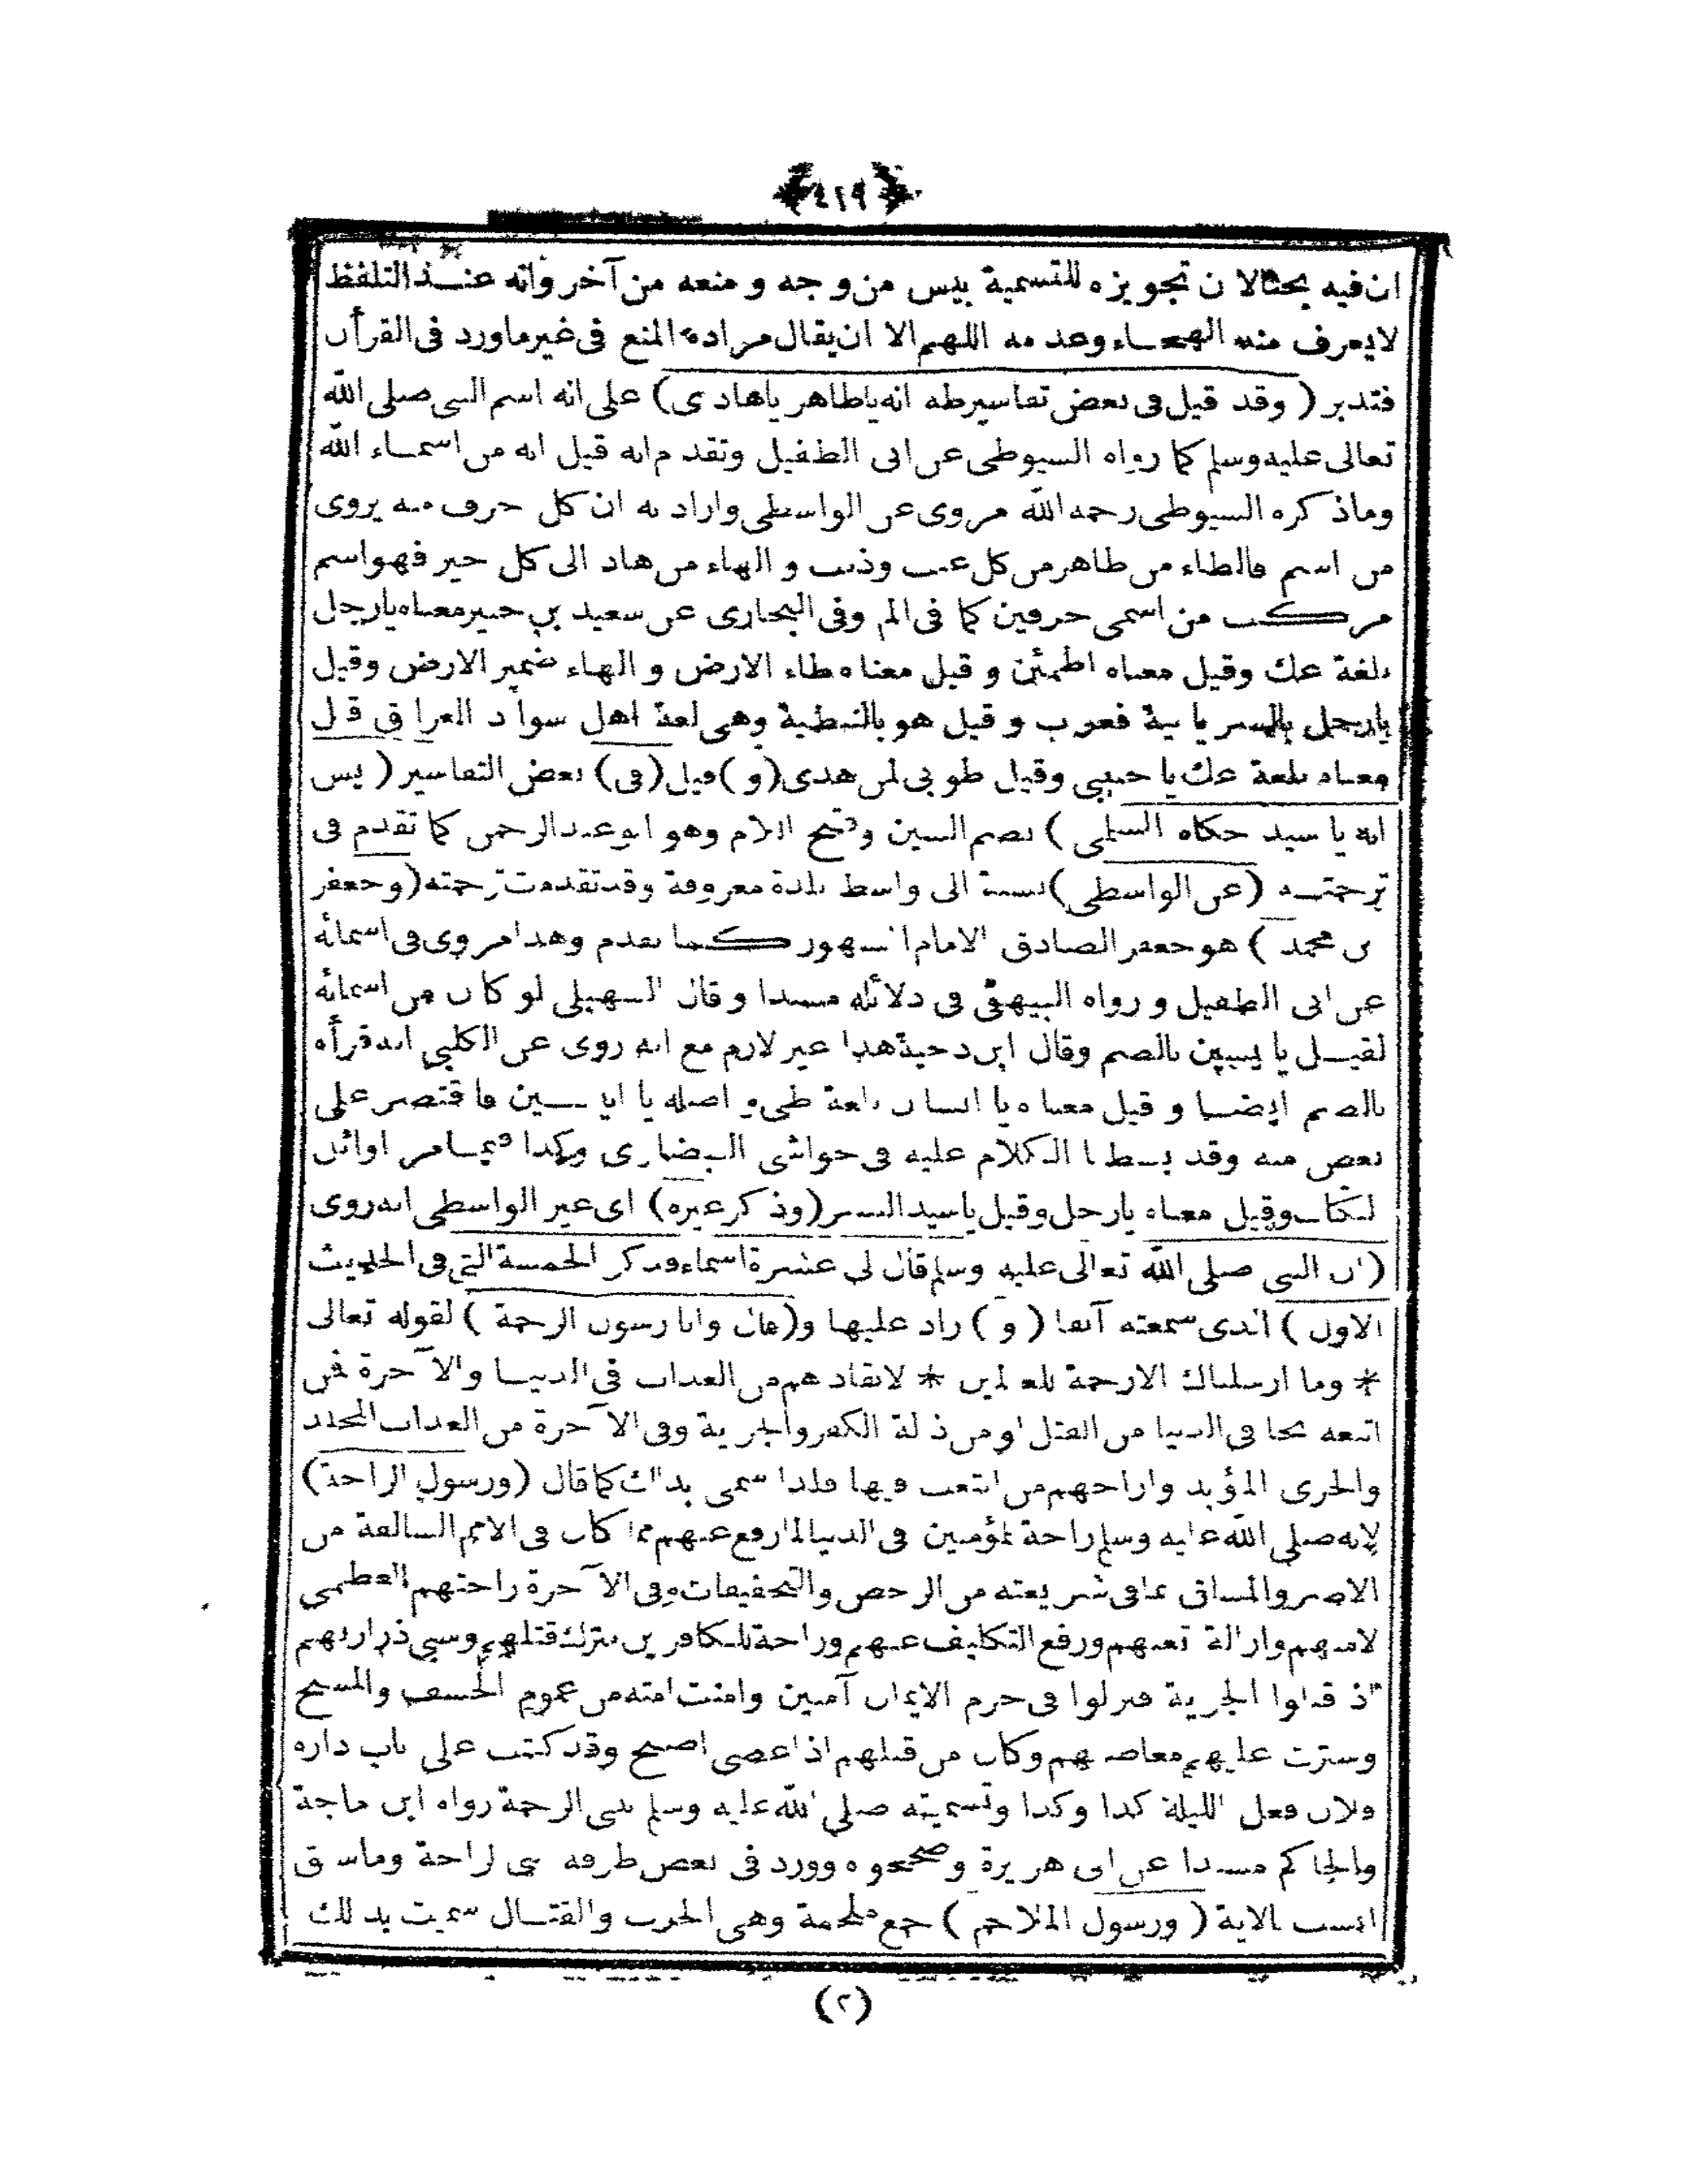 ﴿٤١٩﴾
ان فيه بحثا لان تجويزه للتسمية بيس من وجه و منعه من آخر وانه عند التلفظ
لايعرف منه الهجاء وعدمه اللهم الا ان يقال مراده المنع فى غير ماورد فى القرأن
فتدبر ( وقد قيل فى بعض تفاسير طه انه ياطاهر ياهادى ) على انه اسم النبى صلى الله
تعالى عليه وسلم كما رواه السيوطى عن ابى الطفيل وتقدم انه قيل انه من اسماء الله
وماذكره السيوطى رحمه الله مروى عن الواسطى واراد به ان كل حرف منه يروى
من اسم فالطاء من طاهر من كل عيب وذنب و الهاء من هاد الى كل خير فهو اسم
مركب من اسمى حرفين كما فى الم وفى البخارى عن سعيد بن جبير معناه يارجل
بلغة عك وقيل معناه اطمئن و قيل معناه طاء الارض و الهاء ضمير الارض وقيل
يارجل بالسريانية فعرب و قيل هو بالنبطية وهى لغة اهل سواد العراق قيل
معناه بلغة عك يا حبيبى وقيل طوبى لمن هدى ( و ) قيل ( فى ) بعض التفاسير ( يس
انه يا سيد حكاه السلمى ) بضم السين وفتح اللام وهو ابو عبد الرحمن كما تقدم فى
ترجمته ( عن الواسطى ) نسبة الى واسط بلدة معروفة وقد تقدمت ترجمته ( وجعفر
بن محمد ) هو جعفر الصادق الامام المشهور كما تقدم وهذا مروى فى اسمائه
عن ابى الطفيل و رواه البيهقى فى دلائله مسندا و قال السهيلى لو كان من اسمائه
لقيل يا يسين بالضم وقال ابن دحية هذا غير لازم مع انه روى عن الكلبى انه قرأه
بالضم ايضا و قيل معناه يا انسان بلغة طى و اصله يا ايسين فاقتصر على
بعض منه وقد بسطنا الكلام عليه فى حواشى البيضاوى وكذا فيما مر اوائل
الكتاب وقيل معناه يارجل وقيل ياسيد البشر ( وذكر غيره ) اى غير الواسطى انه روى
( ان النبى صلى الله تعالى عليه وسلم قال لى عشرة اسماء وذكر الخمسة التى فى الحديث
الاول ) الذى سمعته آنفا ( و ) زاد عليها و ( قال وانا رسول الرحمة ) لقوله تعالى
* وما ارسلناك الا رحمة للعالمين * لانقاذهم من العذاب فى الدنيا والآخرة فمن
اتبعه نجا فى الدنيا من القتل او من ذلة الكفر والجزية وفى الآخرة من العذاب المخلد
والخزى المؤبد واراحهم من التعب فيها فلذا سمى بذلك كما قال ( ورسول الراحة )
لانه صلى الله عليه وسلم راحة للمؤمنين فى الدنيا لما رفع عنهم مما كان فى الامم السالفة من
الاصر والمشاق بما فى شريعته من الرخص والتخفيفات وفى الآخرة راحتهم العظمى
لامنهم وازالة تعبهم ورفع التكاليف عنهم وراحة للكافرين بترك قتلهم وسبى ذراريهم
اذ قبلوا الجزية فنزلوا فى حرم الايمان آمنين وامنت امته من عموم الخسف والمسخ
وسترت عليهم معاصيهم وكان من قبلهم اذا عصى اصبح وقد كتب على باب داره
فلان فعل الليلة كذا وكذا وتسميته صلى الله عليه وسلم نبى الرحمة رواه ابن ماجة
والحاكم مسندا عن ابى هريرة وصححوه وورد فى بعض طرقه نبى الراحة وماسبق
انسب بالاية ( ورسول الملاحم ) جمع ملحمة وهى الحرب والقتال سميت بذلك
(٢)